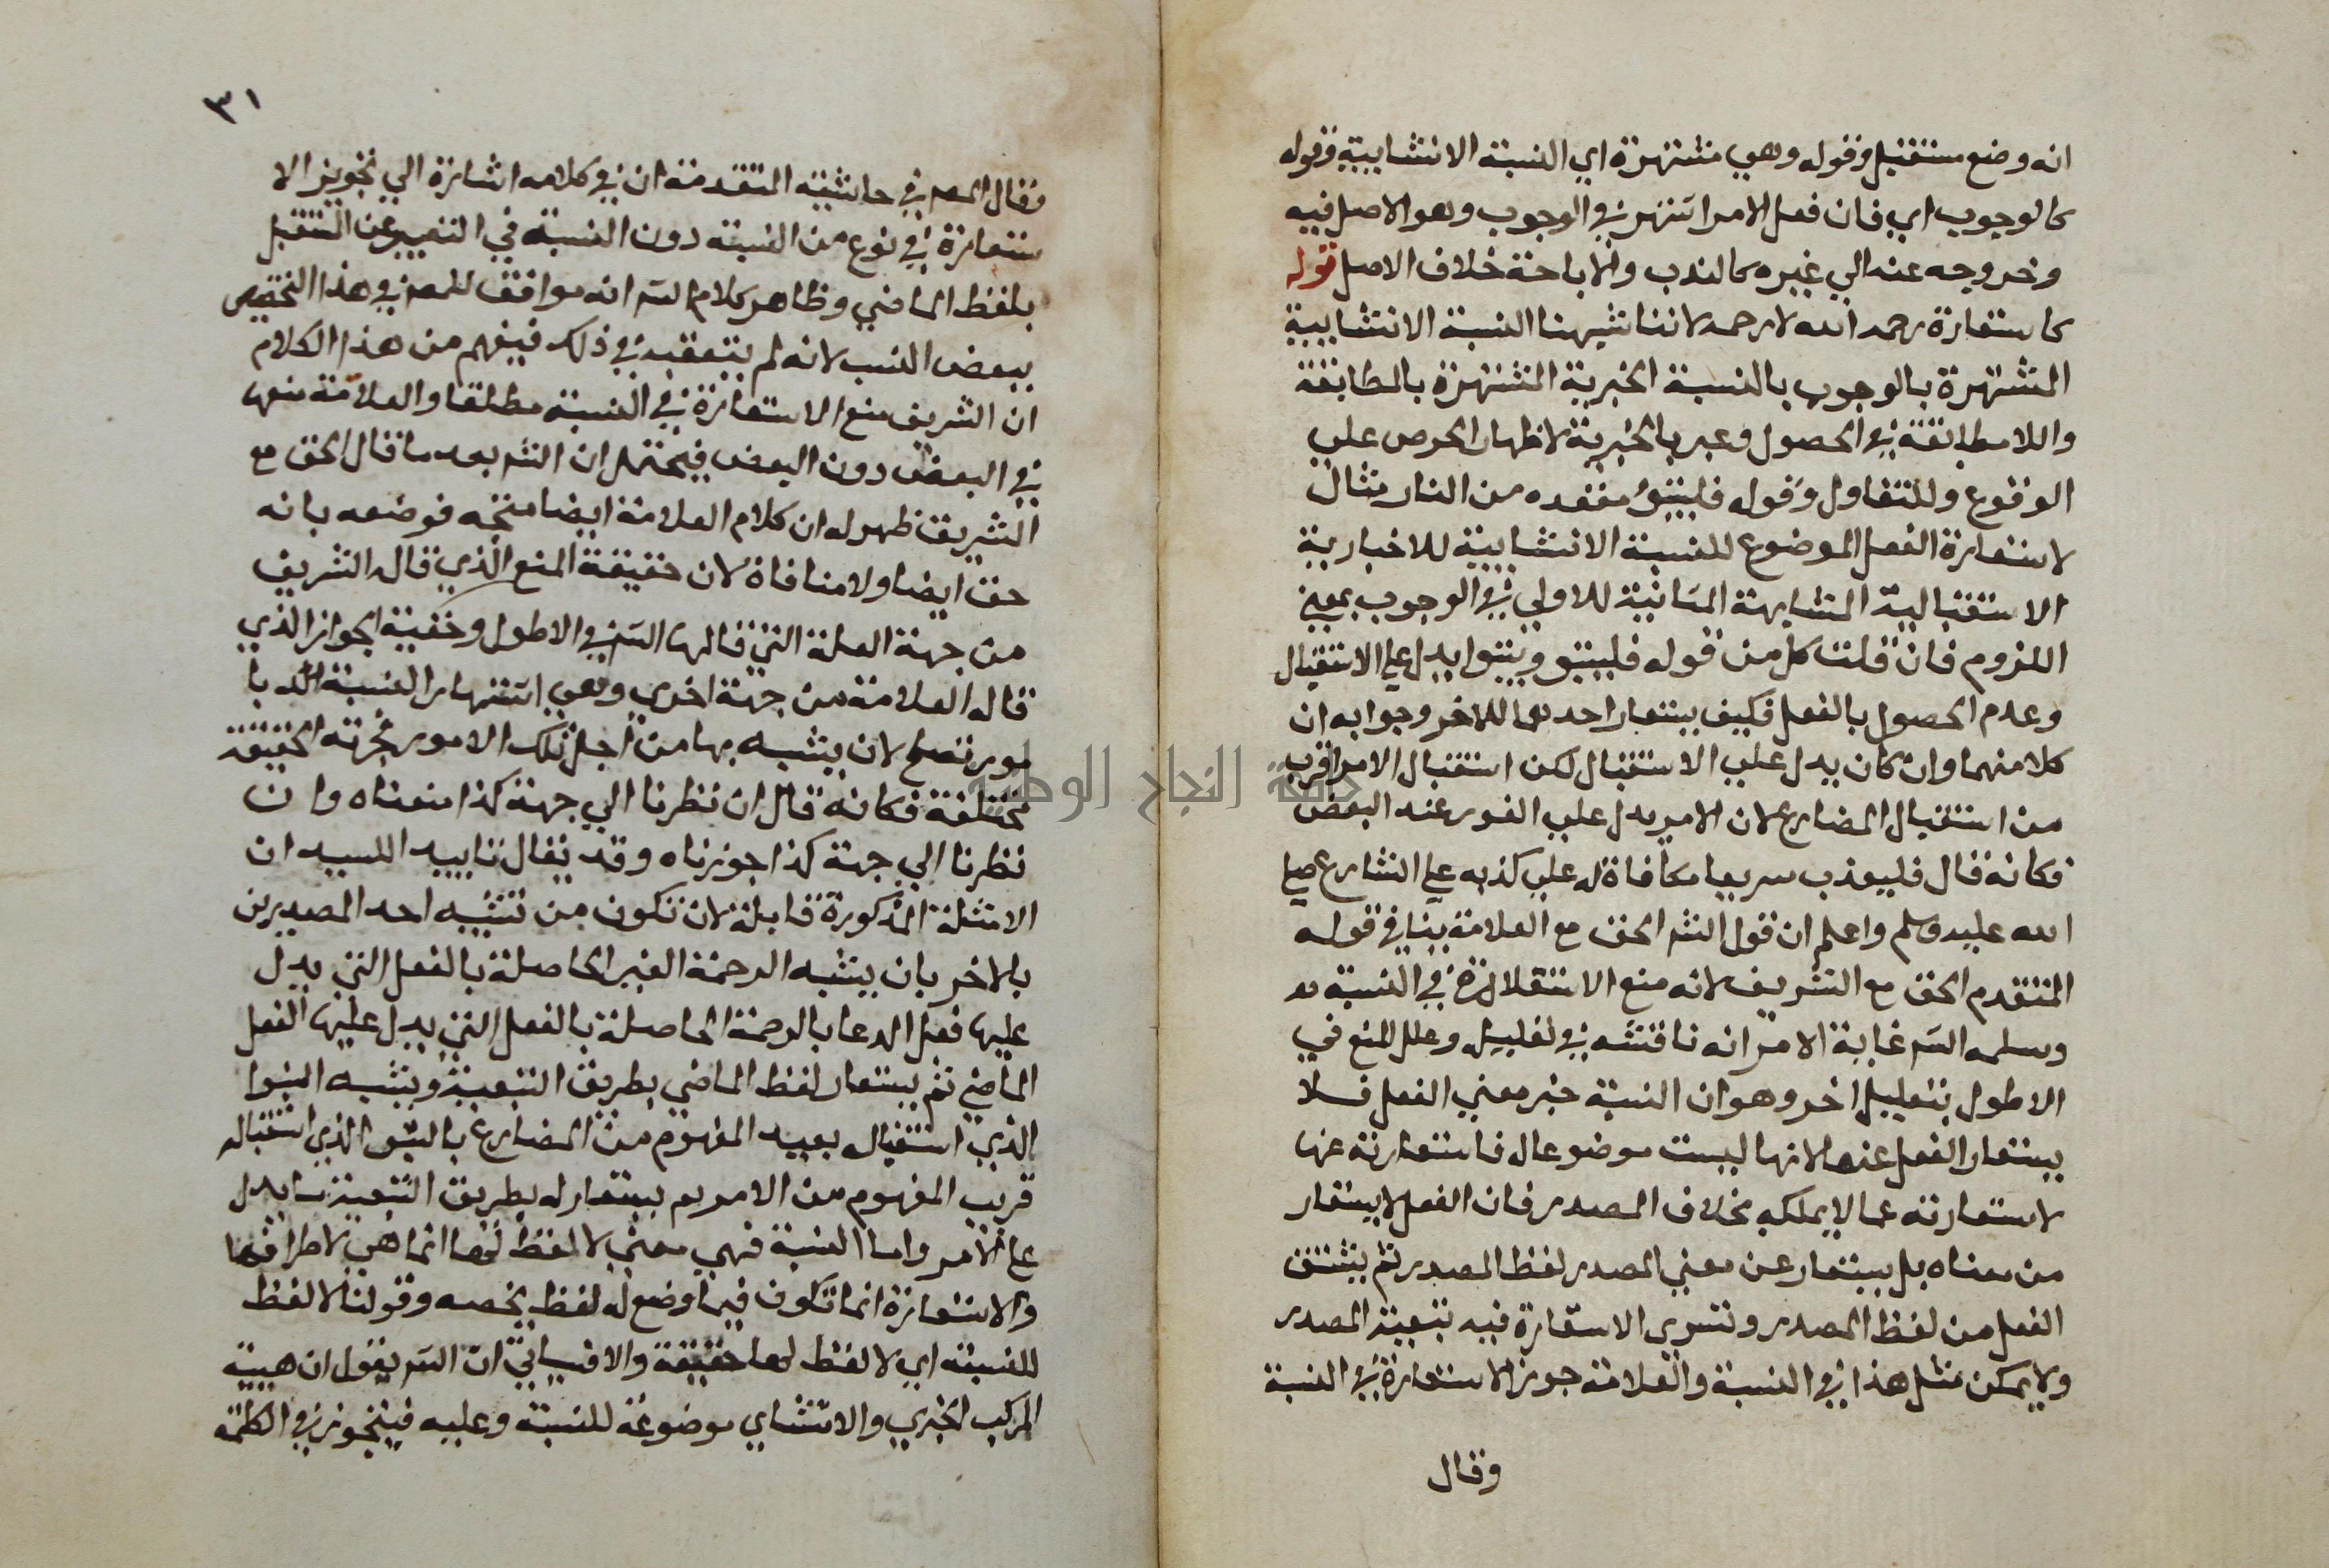 انه وضع مستقبل وقوله وهي مشتهرة اي النسبة الانشايية وقوله
كالوجوب اي فان فعل الامر اشتهر في الوجوب وهو الاصل فيه
وخروجه عنه الي غيره كالندب والاباحة خلاف الاصل قوله
كاستعارة رحمه الله لارحمه لاننا شبهنا النسبة الانشايية
المشتهرة بالوجوب بالنسبة الخبرية المشتهرة بالمطابقة
واللامطابقة في الحصول وعبر بالخبرية لاظهار الحرص علي
الوقوع وللتفاول وقوله فليتبوأ مقعده من النار مثال
لاستعارة الفعل الموضوع للنسبة الانشايية للاخبارية
الاستقبالية المشابهة الثانية للاولي في الوجوب بمعني
اللزوم فان قلت كل من قوله فليتبو ويتبوا يدل علي الاستقبال
وعدم الحصول بالفعل فكيف يستعار احدهما للاخر وجوابه ان
كلا منهما وان كان يدل علي الاستقبال لكن استقبال الامر اقرب
من استقبال المضارع لان الامر يدل علي الفور عند البعض
فكانه قال فليعذب سريعا مكافاة له علي كذبه علي الشارع صلي
الله عليه وسلم واعلم ان قول الشم الحق مع العلامة ينافي قوله
المتقدم الحق مع الشريف لانه منع الاستعارة في النسبة
وسلمه الشم غاية الامر انه ناقشه في تعليله وعلل المنع في
الاطول بتعليل اخر وهو ان النسبة جزء معني الفعل فلا
يستعار الفعل عنها لانها ليست موضوعا له فاستعارته عنها
لاستعارته عما لا يملكه بخلاف المصدر فان الفعل لا يستعار
من معناه بل يستعار عن معني المصدر لفظ المصدر ثم يشتق
الفعل من لفظ المصدر وتسري الاستعارة فيه بتبعية المصدر
ولا يمكن مثل هذا في النسبة والعلامة جوز الاستعارة في النسبة
وقال
٣١
فقال المص في حاشيته المتقدمة ان في كلامه اشارة الي تجويز الا
ستعارة في نوع من النسبة دون النسبة في التعبير عن المستقبل
بلفظ الماضي وظاهر كلام الشم انه موافق للمص في هذا التخصيص
ببعض النسب لانه لم يتعقبه في ذلك فيفهم من هذا الكلام
ان الشريف منع الاستعارة في النسبة مطلقا والعلامة منعها
في البعض دون البعض فيحتمل ان الشم بعد ما قال الحق مع
الشريف ظهر له ان كلام العلامة ايضا متجه فوضعه بانه
حق ايضا ولا منافاة لان حقيقة المنع الذي قاله الشريف
من جهة العلة التي قالها الشم في الاطول وحقية الجواز الذي
قاله العلامة من جهة اخري وهي اشتهار النسبة با
مور تصلح لان يشبه بها من اجل تلك الامور فجهة الحقيقة
مختلفة فكانه قال ان نظرنا الي جهة كذا منعناه وان
نظرنا الي جهة كذا جوزناه وقد يقال تاييد السيد ان
الامثلة المذكورة قابلة لان تكون من تشبيه احد المصدرين
بالاخر بان يشبه الرحمة الغير الحاصلة بالفعل التي يدل
عليها فعل الدعا بالرحمة الحاصلة بالفعل التي يدل عليها الفعل
الماضي ثم يستعار لفظ الماضي بطريق التبعية ويشبه التبوا
الذي استقباله بعيد المفهوم من المضارع بالتبو الذي استقباله
قريب المفهوم من الامر يم يستعار له بطريق التبعية ما يدل
علي الامر واما النسبة فهي معني لا لفظ لها انما هي لاطرافها
والاستعارة انما تكون فيما وضع له لفظ يخصه وقولنا لا لفظ
للنسبة اي لا لفظ لها حقيقة والا فسياتي ان الشم يقول ان هيية
المركب الخبري والانشاي موضوعة للنسبة وعليه فيتجوز في الكلمة
جامعة النجاح الوطنية